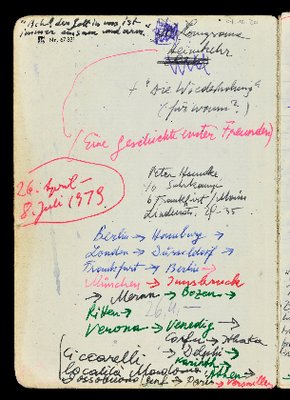 "Ach, der Gott in uns ist
immer einsam und arm"
Nr. 6733
Heimkehr
+ "Die Wiederholung"
(für wann?)
(Eine Geschichte unter Freunden)
26. April –
8. Juli 1979
Peter Handke
c/o Suhrkamp
6 Frankfurt / Main
Lindenstr. 29-35
Berlin → Hamburg →
London → Düsseldorf →
Frankfurt → Berlin →
München → Innsbruck
→ Meran → Bozen →
Ritten →
Verona → Venedig →
Korfu → Ithaka
→ Delphi →
Athen →
Località
→ Paris → Versailles